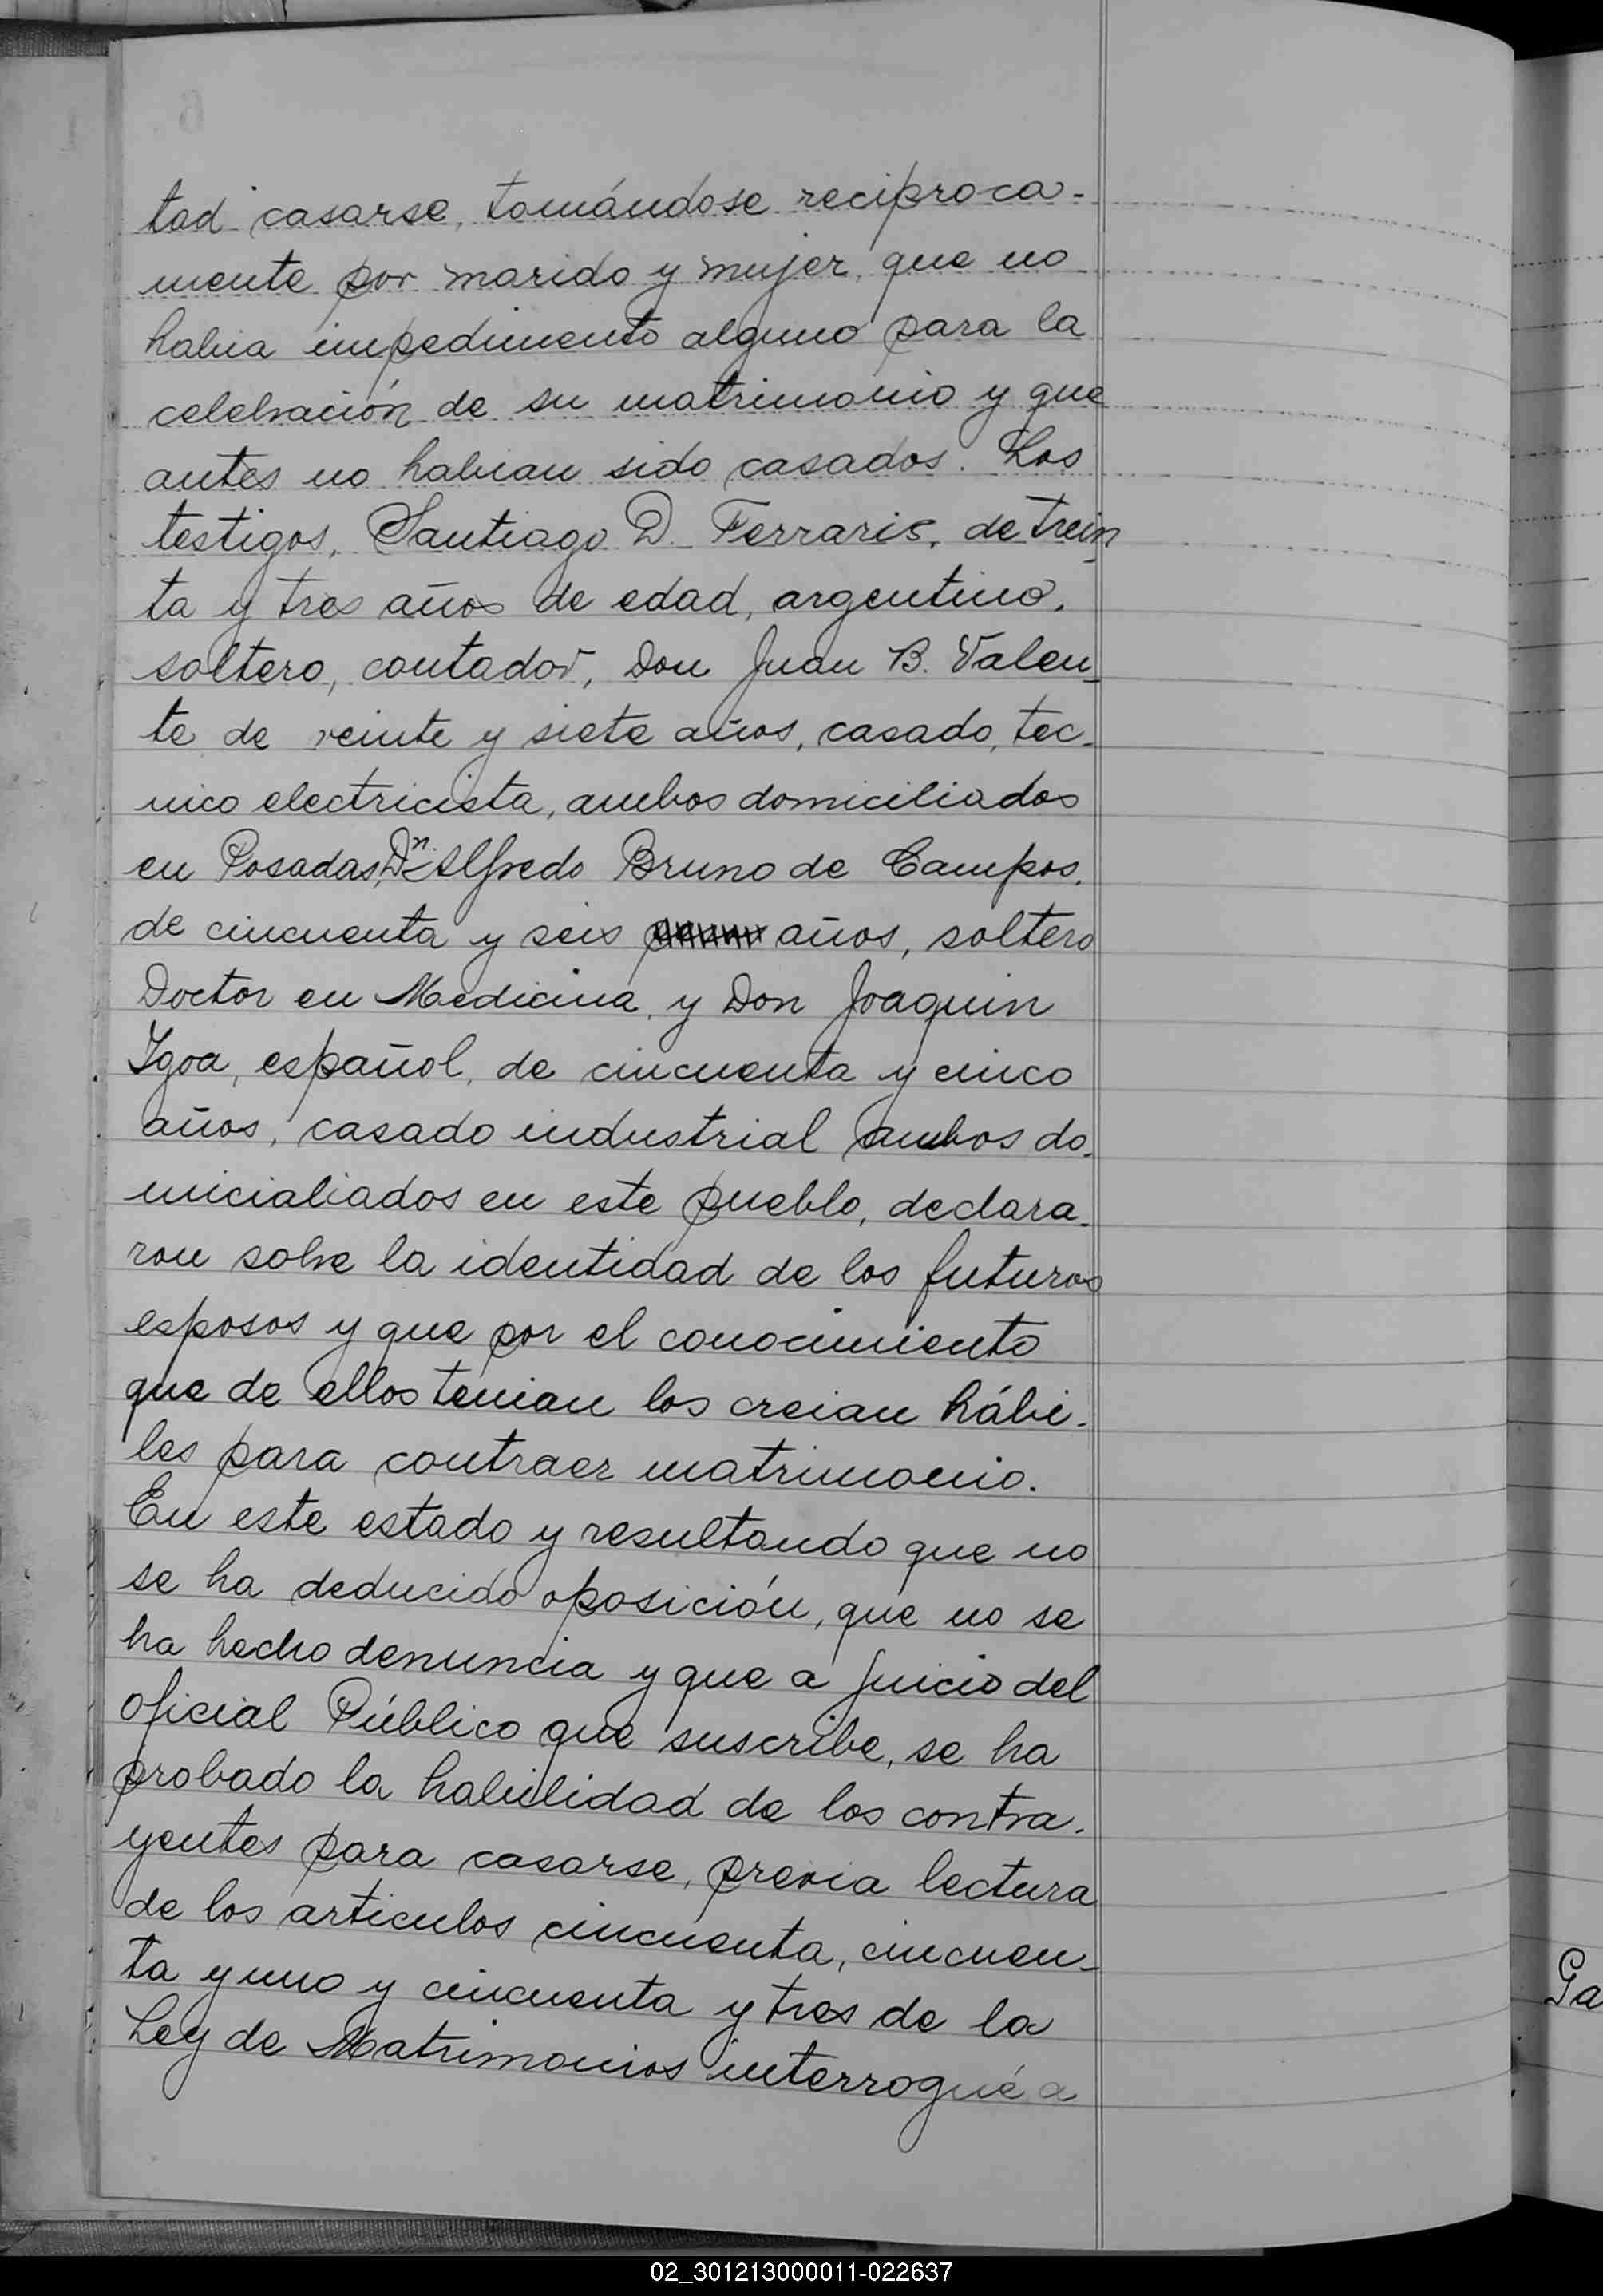 tad casarse, tomándose reciproca-
mente por marido y mujer, que no
habia impedimento alguno para la
celebración de su matrimonio y que
antes no habian sido casados. Los
testigos, Santiago D. Ferraris, de trein
ta y tres años de edad, argentino,
soltero, contador, Don Juan B. Valen_
te de veinte y siete años, casado, tec-
nico electricista, ambos domiciliados
en Posadas, Dn Alfredo Bruno de Campos,
de cincuenta y seis años, soltero
Doctor en Medicina, y Don Joaquin
Ygoa, español, de cincuenta y cinco
años, casado industrial ambos do-
micialiados en este pueblo, declara-
ron sobre la identidad de los futuros
esposos y que por el conocimiento
que de ellos tenian los creian hábi-
les para contraer matrimonio.
En este estado y resultando que no
se ha deducido oposición, que no se
ha hecho denuncia y que a juicio del
oficial Público que suscribe, se ha
probado la habilidad de los contra-
yentes para casarse, previa lectura
de los articulos cincuenta, cincuen-
ta y uno y cincuenta y tres de la
Ley de Matrimonios interrogué a
Ga
02_301213000011-022637